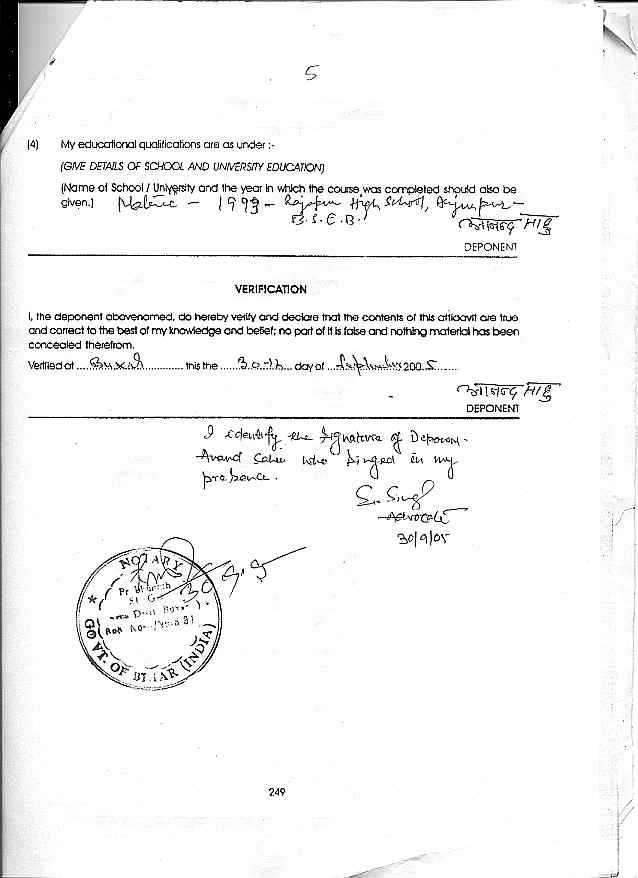 5
(4) My educational qualifications are as under :-
(GIVE DETAILS OF SCHOOL AND UNIVERSITY EDUCATION)
(Name of School / University and the year in which the course was completed should also be
given.) Matric - 1993 - Rajapur High School,
B.S.E.B.
DEPONENT
VERIFICATION
I, the deponent abovenamed, do hereby verify and declare that the contents of this affidavit are true
and correct to the best of my knowledge and belief; no part of it is false and nothing material has been
concealed therefrom.
Verified at ....Buxar............ this the ......30th... day of ...September 2005........
DEPONENT
I identify the Signature of Deponent
Anand Sahu who singed in my
presence.
S. Singh
Advocate
30/9/05
NOTARY
30.9.5
GOVT. OF BIHAR (INDIA)
249